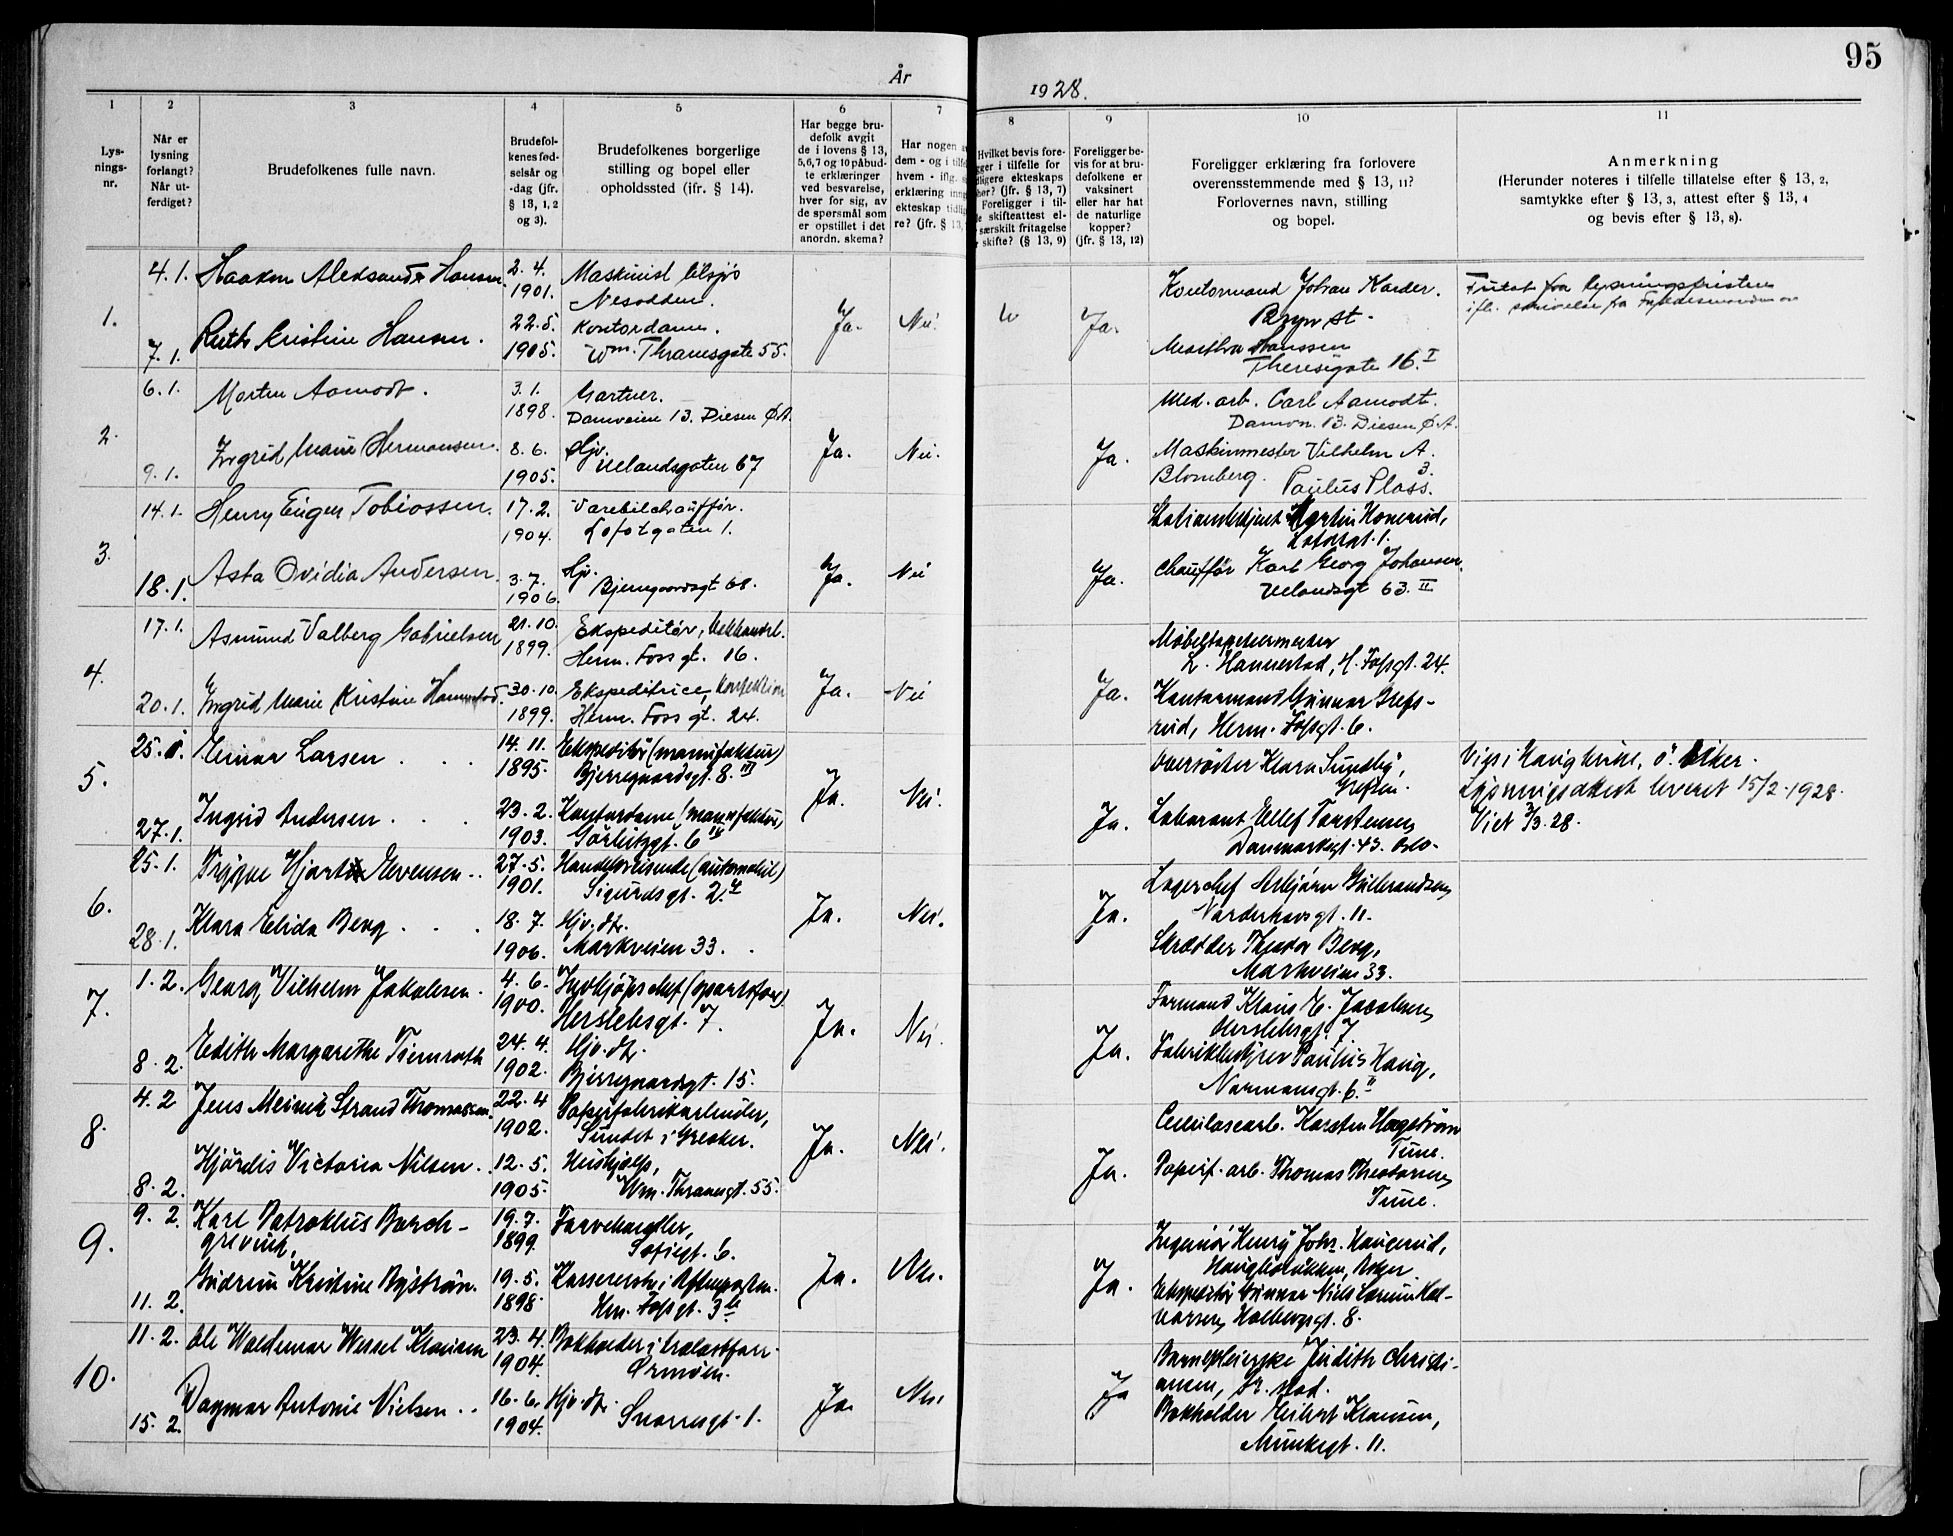 År 1928.
95
1 2 3 4 5 6 7 8 9 10 11
Lys-
nings-
nr.
Når er
lysning
forlangt?
Når ut-
ferdiget?
Brudefolkenes fulle navn.
Brudefol-
kenes fød-
selsår og
-dag (jfr.
§ 13, 1, 2
og 3).
Brudefolkenes borgerlige
stilling og bopel eller
opholdssted (ifr. § 14).
Har begge bru-
defolk avgit
de i lovens § 13,
5,6,7 og 10 påbud-
te erklæringer
ved besvarelse,
hver for sig, av
de spørsmål som
er opstillet i det
anordn. skema?
Har nogen a
dem - og i tilfe
hvem - iflg.
erklæring inng
ekteskap tidlig
re? (jfr. § 13,
Hvilket bevis fore-
gger i tilfelle for
dligere ekteskaps
hør? (jfr. § 13, 7)
Foreligger i til-
le skifteattest el-
særskilt fritagelse
skifte? (§ 13, 9)
Foreligger be-
vis for at bru-
defolkene er
vaksinert
eller har hat
de naturlige
kopper?
(jfr. § 13, 12)
Foreligger erklæring fra forlovere
overensstemmende med § 13, 11?
Forlovernes navn, stilling
og bopel.
Anmerkning
(Herunder noteres i tilfelle tillatelse efter § 13, 2,
samtykke efter § 13, 3, attest efter § 13, 4
og bevis efter § 13, 8).
1.
4. 1.
7. 1.
Haakon Aleksander Hansen.
Ruth Kristine Hansen.
2. 4.
1901.
22. 5.
1905.
Maskinist tilsjøs
Nesodden.
Kontordame.
Wm. Thranesgate 55.
Ja.
Nei.
Ja.
Kontormand Johan Karder.
Bryn st.
Martha Hanssen
Theresegate 16. I
Fritat fra lysningsfristen
ifl. skrivelse fra Fylkesmannen
2.
6. 1.
9. 1.
Morten Aamodt.
Ingrid Marie Hermansen.
3. 1.
1898.
8. 6.
1905.
Gartner.
Damveien 13. Disen Ø.A.
Hjv.
Uelandsgaten 67
Ja.
Nei.
Ja.
Med. arb. Carl Aamodt.
Damvn. 13. Disen Ø.A.
Maskinmester Vilhelm A.
Blomberg. Paulus Plass 3.
3.
14. 1.
18. 1.
Henry Eugen Tobiassen.
Asta Ovidia Andersen.
17. 2.
1904.
3. 7.
1906.
Varebilchauffør.
Lofotgaten 1.
Hjv.
Bjerregaardsgt 68.
Ja.
Nei
Ja.
Martin Honerud,
Lofotgt. 1.
Chauffør Karl Georg Johansen.
Uelandsgt 63. II
4.
17. 1.
20. 1.
Asmund Valberg Gabrielsen
Ingrid Marie Kristine Hannestad.
21. 10.
1899.
30. 10.
1899.
Ekspeditør,
Herm. Foss gt. 16.
Ekspeditrice, Konfektion
Herm. Foss gt. 24.
Ja.
Nei
Ja.
Møbeltapetsermester
L. Hannestad, H. Fossgt. 24.
Kontormand Gunnar Grefs-
rud, Herm. Fossgt. 6.
5.
25. 1.
27. 1.
Einar Larsen
Ingrid Andersen
14. 11.
1895.
23. 2.
1903.
Ekspeditør (manufaktur)
Bjerregaardsgt. 8. III
Kontordame (manufaktur)
Gørbitzgt. 6 IV
Ja.
Nei.
Ja.
Oversøster Klara Sundby,
Grefsen.
Laborant Ellef Torstensen
Danmarksgt. 43. Oslo.
Vies i Haugkirke, Ø. Aker.
Lysningsattest leveret 15/2-1928.
Viet 3/3. 28.
6.
25. 1.
28. 1.
Trygve Hjart Evensen
Klara Elida Berg
27. 5.
1901.
18. 7.
1906.
Handelsreisende (automobil)
Sigurdsgt. 2.
Hjv. dtr.
Markveien 33.
Ja.
Nei.
Ja.
Lagerchef Asbjørn Gulbrandsen
Nordenhovsgt. 11.
Skrædder Theodor Berg,
Markveien 33.
7.
1. 2.
8. 2.
Georg Vilhelm Jakobsen.
Edith Margarethe Tiemroth
4. 6.
1900.
24. 4.
1902.
Indkjøpschef
Herslebsgt. 7.
Hjv. dtr.
Bjerregaardsgt. 15.
Ja.
Nei.
Ja.
Formand Klaus E. Jacobsen
Herslebsgt. 7.
Fabrikbestyrer Paulus Haug,
Normansgt. 6. II
8.
4. 2
8. 2.
Jens Meinik Strand Thomassen.
Hjørdis Victoria Nilsen.
22. 4
1902.
12. 5.
1905.
Papirfabrikarbeider,
Sundet i Greaker.
Hushjælp,
Wm. Thranesgt. 55.
Ja.
Nei.
Ja.
Cellulosearb. Karsten Hagstrøm
Tune.
Papirf. arb. Thomas Theodorsen
Tune.
9.
9. 2.
11. 2.
Karl Patroklus Borch-
grevink,
Gudrun Kristine Bystrøm.
19. 7.
1899.
19. 5.
1898.
Farvehandler,
Sofiegt. 6.
Kassererske i Aftenposten.
Hrm. Fossgt. 3 b
Ja.
Nei.
Ja.
Ingeniør Henry Johs. Haugerud,
Asker.
Ekspeditør Gunnar Niels Hal-
vorsen, Holbergsgt. 8.
10.
11. 2.
15. 2.
Ole Waldemar Wessel Klausen
Dagmar Antonie Nielsen
23. 4.
1904.
16. 6.
1904.
Bokholder i trælastforr.
Ormøen.
Hjv. dtr.
Snorresgt. 1.
Ja.
Nei
Ja
Barnepleierske Judith Christi-
ansen,
Bokholder Eilert Klausen,
Munkegt. 11.